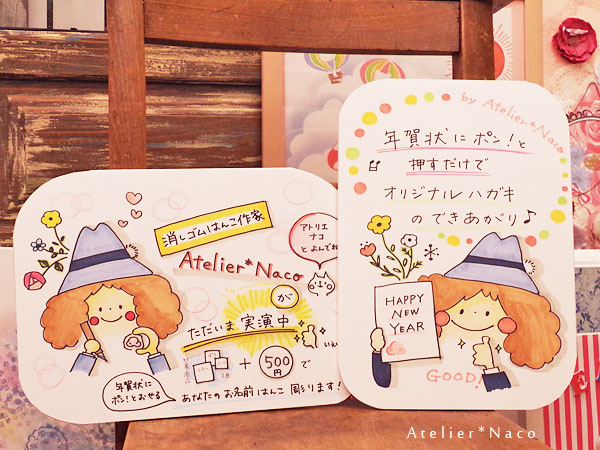 消しゴムはんこ作家
Atelier*Naco
が
ただいま 実演中
アトリエ
ナコ
とよんでね
いぇい
+ 500円 で
年賀状に
ポン!とおせる
あなたのお名前はんこ 彫ります!
by Atelier*Naco
年賀状にポン!と
押すだけで
オリジナルハガキ
のできあがり♪
HAPPY
NEW
YEAR
GOOD!
Atelier*Naco